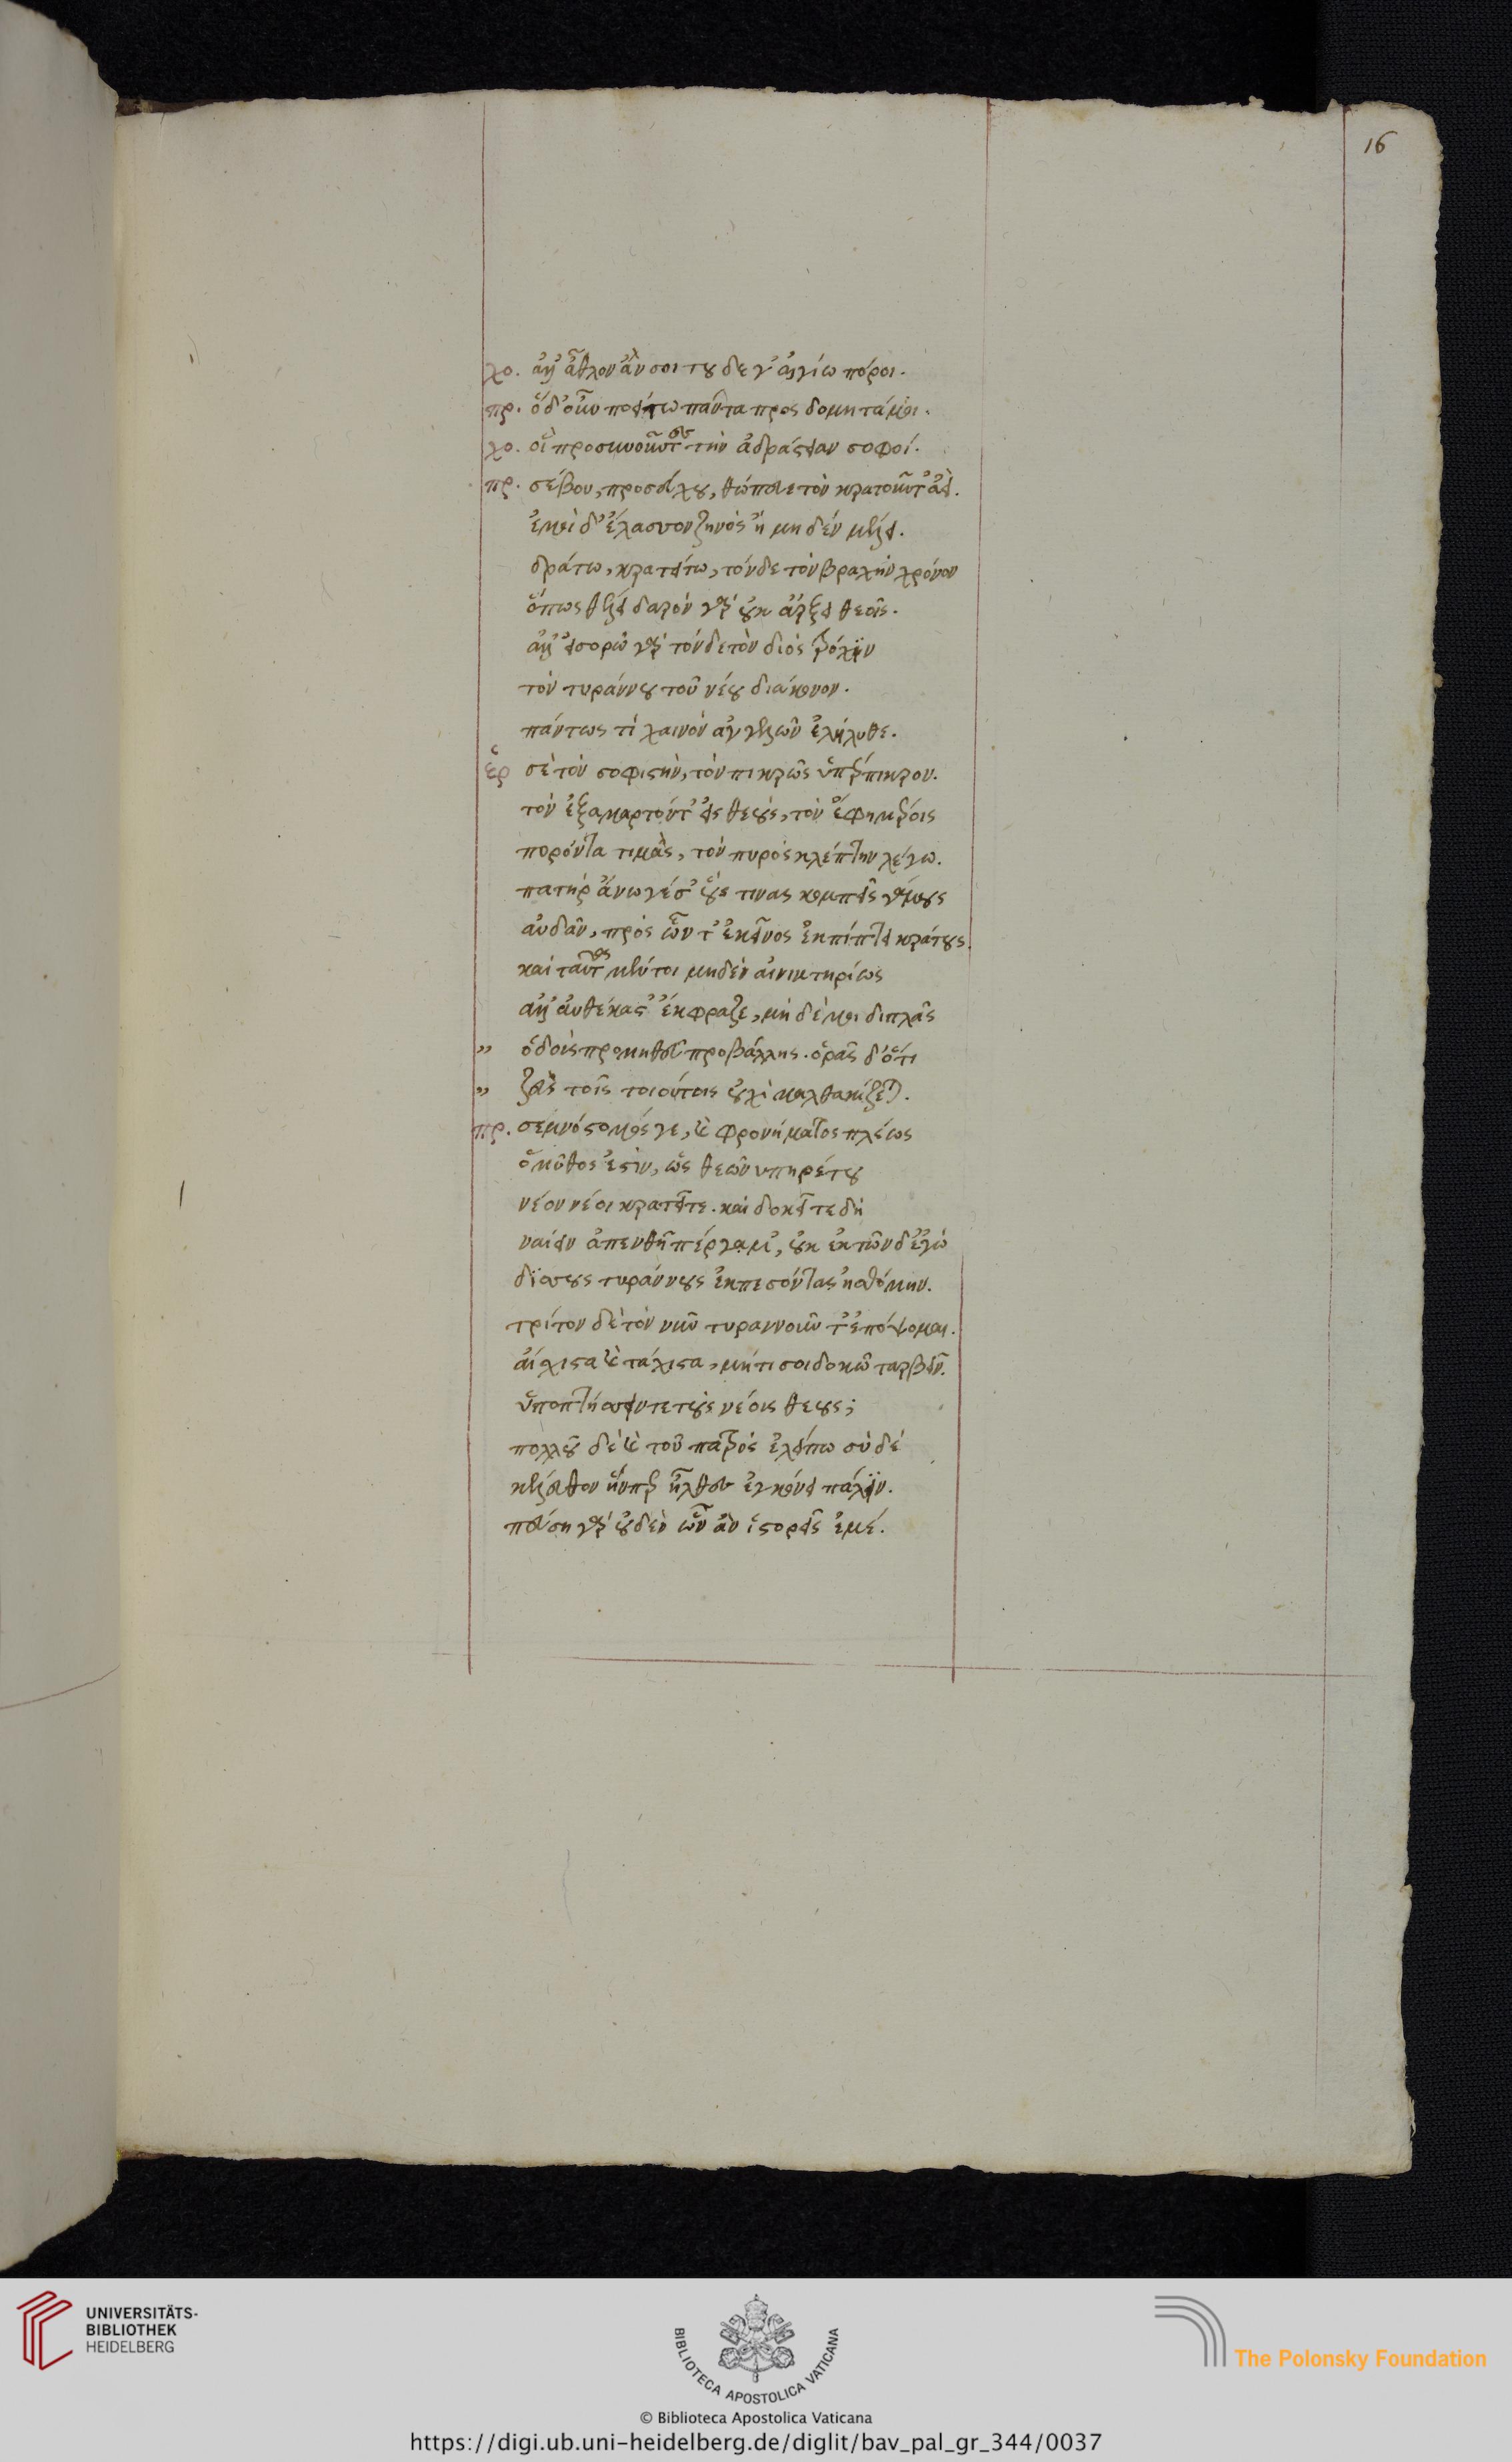 16
χο. ἀλλ' ἆθλον ἄν σοι τοῦδε γ' ἀλγίω πόροι.
πρ. ὅδ' οὖν ποιείτω πάντα προσδοκητά μοι.
χο. οἱ προσκυνοῦντες τὴν ἀδράστειαν σοφοί.
πρ. σέβου, προσεύχου, θῶπτε τὸν κρατοῦντ' ἀεί.
ἐμοὶ δ' ἔλασσον ζηνὸς ἢ μηδὲν μέλει.
δράτω, κρατείτω, τόνδε τὸν βραχὺν χρόνον
ὅπως θέλει δαρὸν γὰρ οὐκ ἄρξει θεοῖς.
ἀλλ' εἰσορῶ γὰρ τόνδε τὸν διὸς τρόχιν
τὸν τυράννου τοῦ νέου διάκονον.
πάντως τὶ καινὸν ἀγγελῶν ἐλήλυθε.
ἑρ σὲ τὸν σοφιστὴν, τὸν πικρῶς ὑπέρπικρον.
τὸν ἐξαμαρτόντ' εἰς θεοὺς, τὸν ἐφημέροις
πορόντα τιμὰς, τὸν πυρὸς κλέπτην λέγω.
πατὴρ ἄνωγέ σ' οὕς τινας κομπεῖς γάμους
αὐδᾶν, πρὸς ὧν τ' ἐκεῖνος ἐκπίπτει κράτους.
καὶ ταῦτα μέντοι μηδὲν αἰνικτηρίως
ἀλλ' αὐθέκαστ' ἔκφραζε, μὴ δέ μοι διπλᾶς
" ὁδοὺς προμηθεῦ προβάλλης. ὁρᾶς δ' ὅτι
" ζεὺς τοῖς τοιούτοις οὐχὶ μαλθακίζεται.
πρ. σεμνόστομός γε, καὶ φρονήματος πλέως
ὁ μῦθος ἐστὶν, ὡς θεῶν ὑπηρέτου
νέον νέοι κρατεῖτε. καὶ δοκεῖτε δὴ
ναίειν ἀπενθῆ πέργαμ', οὐκ ἐκ τῶνδ' ἐγὼ
δισσοὺς τυράννους ἐκπεσόντας ἠσθόμην.
τρίτον δὲ τὸν νῦν τυραννοῦντ' ἐπόψομαι.
αἴσχιστα καὶ τάχιστα, μή τι σοι δοκῶ ταρβεῖν.
ὑποπτήσσειν τε τοὺς νέους θεούς;
πολλοῦ δὲ καὶ τοῦ παντὸς ἐλλείπω σὺ δὲ
κέλευθον ἥνπερ ἦλθες ἐγκόνει πάλιν.
πεύση γὰρ οὐδὲν ὧν ἂν ἱστορεῖς ἐμέ.
UNIVERSITÄTS-
BIBLIOTHEK
HEIDELBERG
BIBLIOTECA APOSTOLICA VATICANA
The Polonsky Foundation
© Biblioteca Apostolica Vaticana
https://digi.ub.uni-heidelberg.de/diglit/bav_pal_gr_344/0037